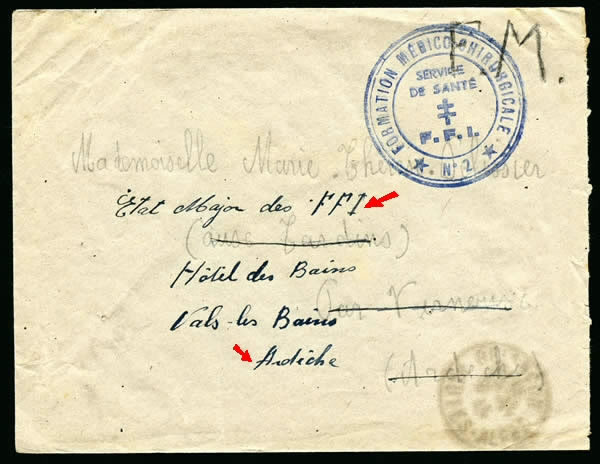 F.M.
FORMATION MÉDICO-CHIRURGICALE
SERVICE
DE SANTÉ
F.F.I.
N° 2
Mademoiselle Marie Thérèse
Etat Major des FFI
(aux Jardins)
Hôtel des Bains
Par Vernoux
Vals-les Bains
Ardèche
(Ardèche)